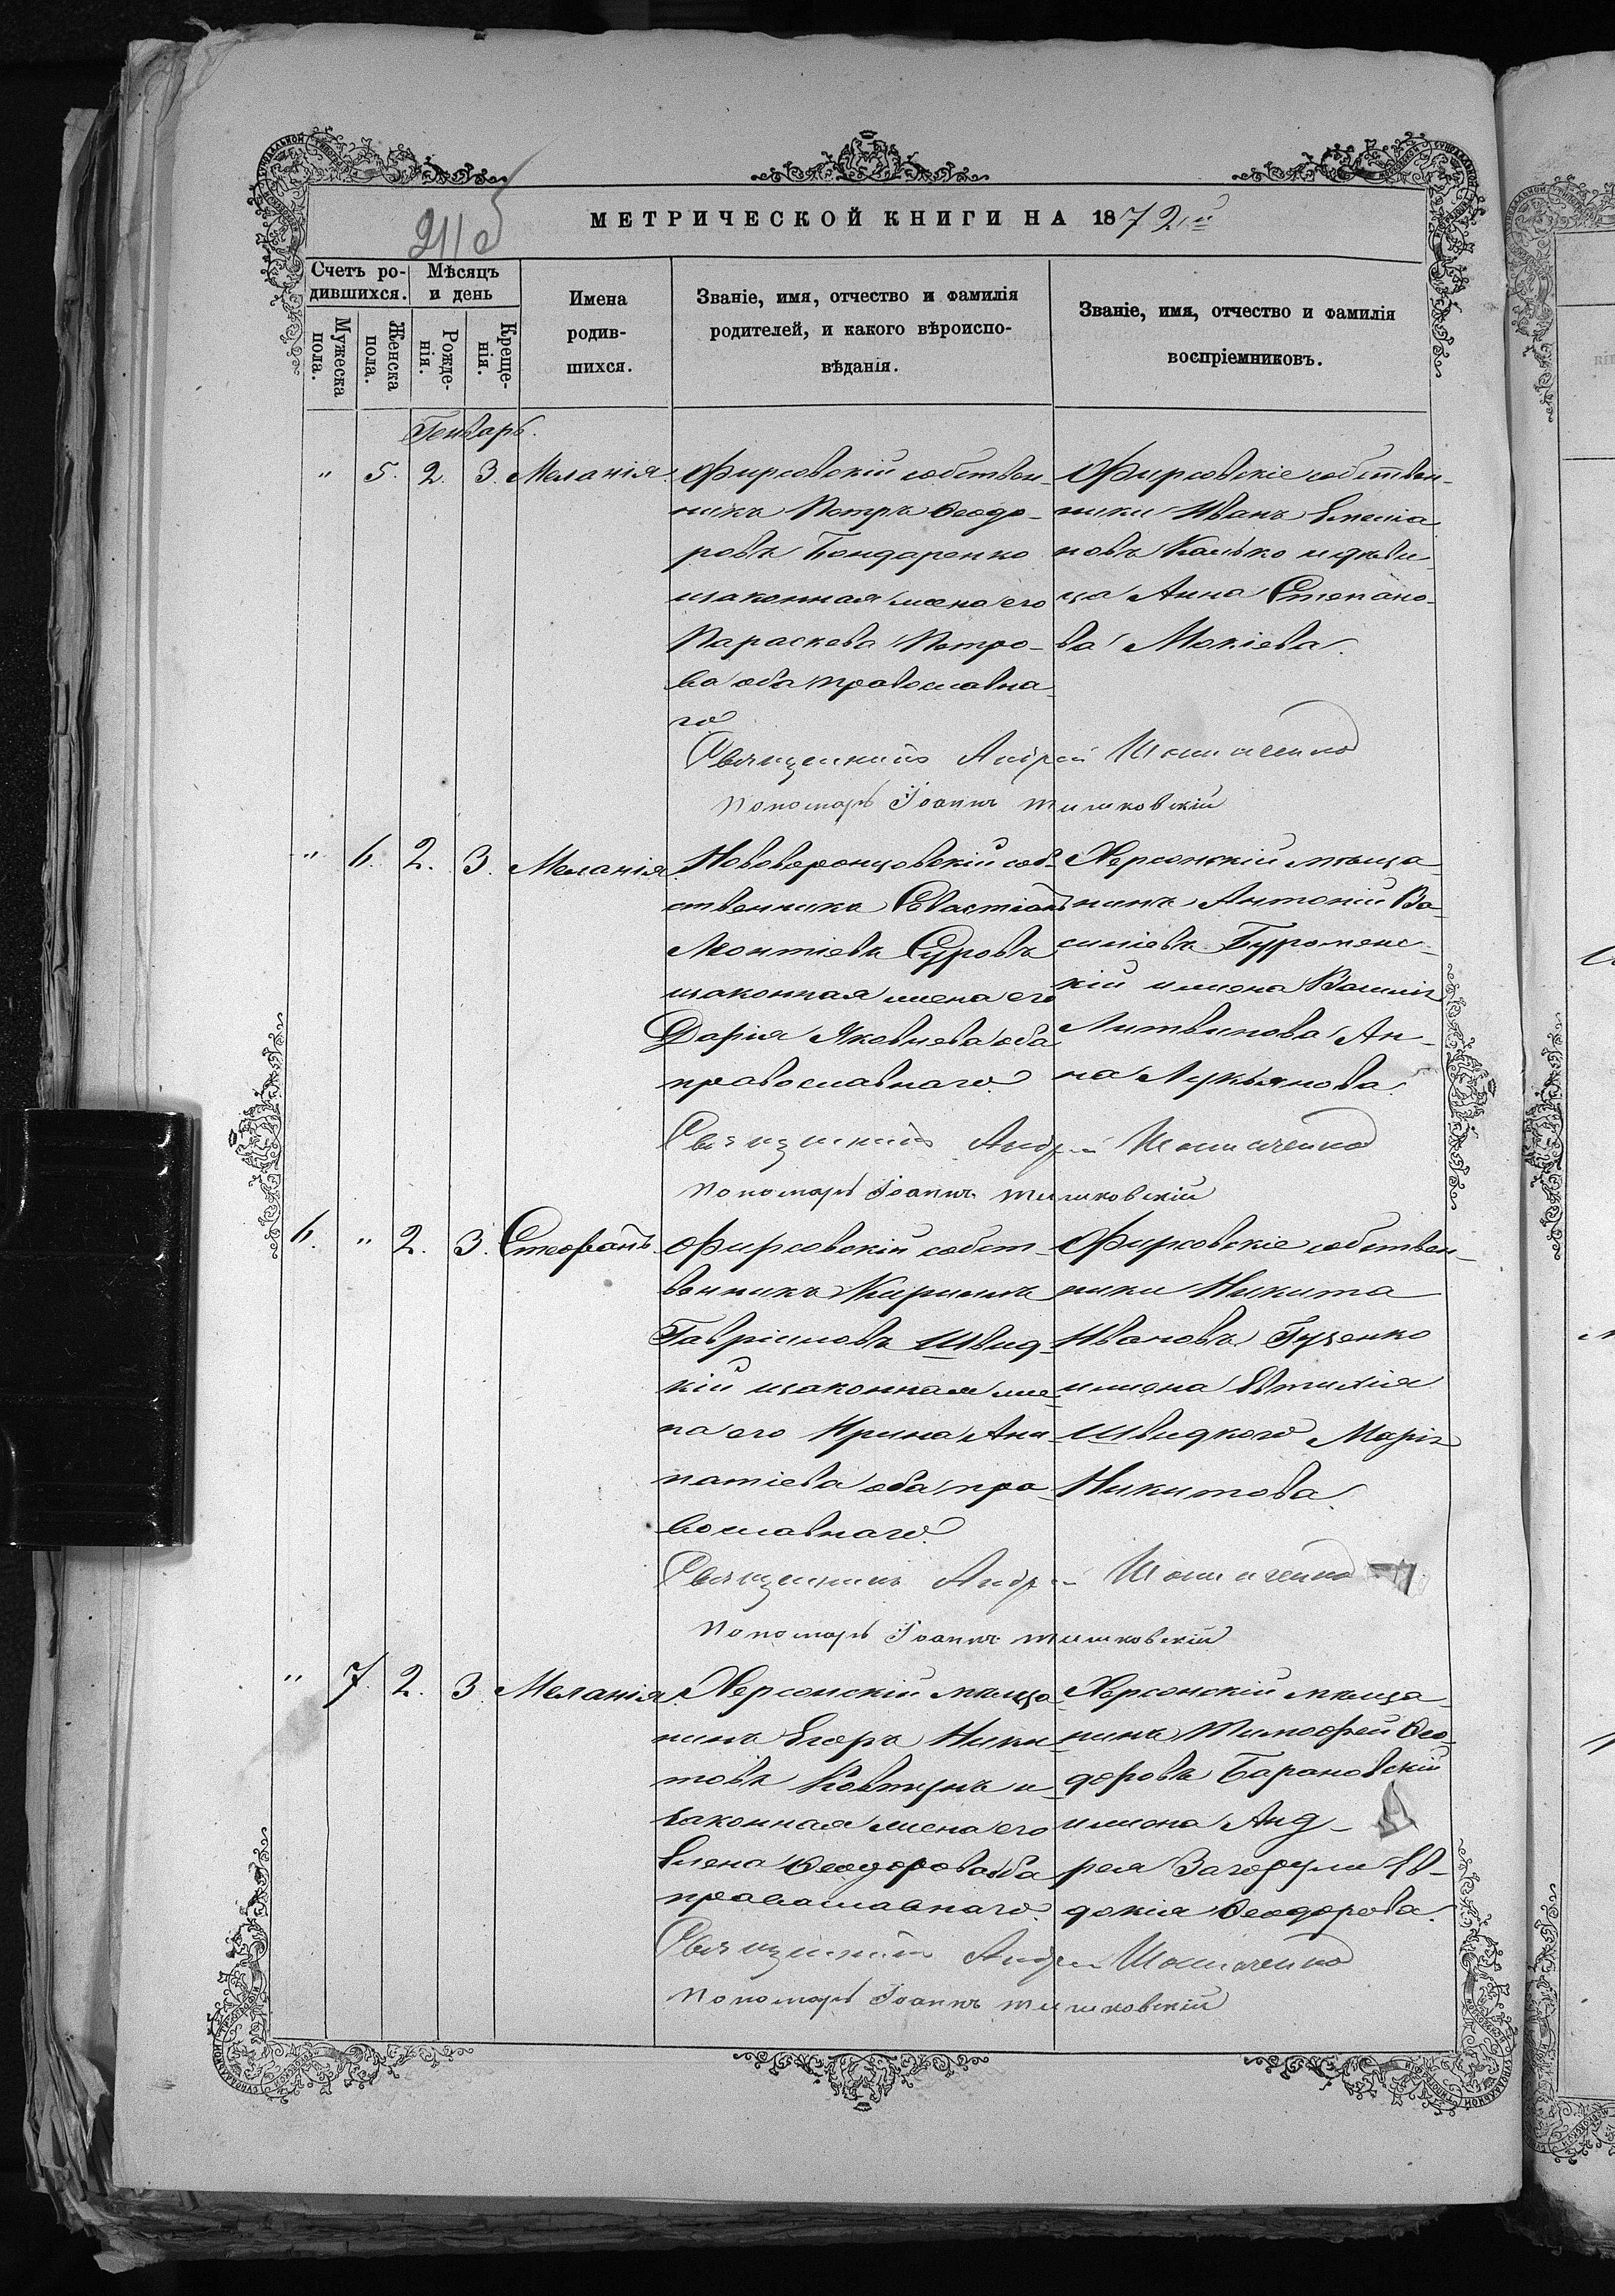 МЕТРИЧЕСКОЙ КНИГИ НА 1872й
Счетъ ро-
дившихся.
Мѣсяцъ
и день
Мужеска
пола.
Женска
пола.
Рожде-
нія.
Креще-
нія.
Имена
родив-
шихся.
Званіе, имя, отчество и фамилія
родителей, и какого вѣроиспо-
вѣданія.
Званіе, имя, отчество и фамилія
воспріемниковъ.
Генварь.
" 5. 2. 3. Меланія.
Фирсовскій собствен-
никъ Петръ Ѳеодо-
ровъ Бондаренко
изаконная жена его
Параскева Петро-
ва оба православна-
го
Фирсовскіе собствен-
ники Иванъ Емелія
новъ Калько идѣви-
ца Анна Степано-
ва Мокіева.
Священникъ Андрей
Пономарь Іоаннъ
" 6. 2. 3. Меланія
Нововоронцовскій соб-
ственникъ Севастіанъ
Леонтіевъ Суровъ
изаконная жена его
Дарія Яковлева оба
православнаго
Херсонскій мѣща-
нинъ Антоній Ва-
силіевъ Буромен-
скій ижена Василія
Литвинова Ан-
на Лукьянова.
Священникъ Андрей
Пономарь Іоаннъ
6. " 2. 3. Стефанъ.
Фирсовскій собст-
венникъ Кириллъ
Гавріиловъ Швид-
кій изаконная же-
на его Ирина Ани-
патіева оба пра-
вославнаго.
Фирсовскіе собствен-
ники Никита
Ивановъ Гуценко
ижена Евтихія
Швидкого Марія
Никитова.
Священникъ Андрей
Пономарь Іоаннъ
" 7. 2. 3. Меланія.
Херсонскій мѣща-
нинъ Егоръ Ники-
товъ Ковтунъ и
законная жена его
Елена Ѳеодорова оба
православнаго.
Херсонскій мѣща-
нинъ Тимофей Ѳео-
доровъ Барановскій
ижена Анд-
рея Загорули Ев-
докія Ѳеодорова.
Священникъ Андрей
Пономарь Іоаннъ